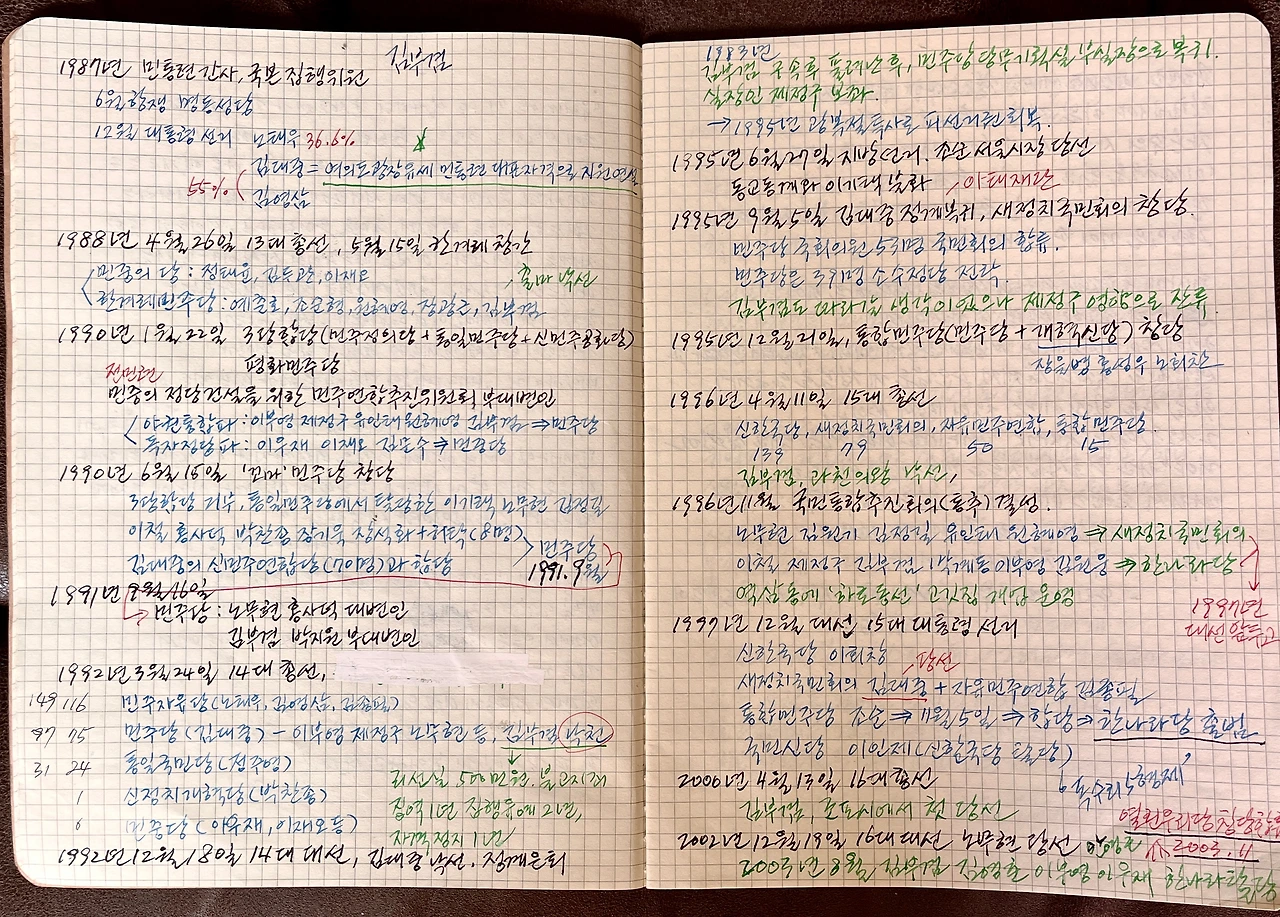 김부겸
1987년 민통련 간사, 국본 집행위원
6월항쟁 명동성당
12월 대통령 선거 노태우 36.6%
김대중 = 여의도광장유세 민통련 대표자격으로 지원연설
55%
김영삼
1988년 4월 26일 13대 총선, 5월 15일 한겨레 창간
민중의 당 : 정태윤, 김두관, 이재오 출마 낙선
한겨레민주당 : 예춘호, 조순형, 원혜영, 장광근, 김부겸
1990년 1월 22일 3당합당(민주정의당 + 통일민주당 + 신민주공화당)
평화민주당
전민련
민중의 정당건설을 위한 민주연합추진위원회 부대변인
야권통합파 : 이부영 제정구 유인태 원혜영 김부겸 ⇒ 민주당
독자정당파 : 이우재 이재오 김문수 ⇒ 민중당
1990년 6월 15일 '꼬마' 민주당 창당
3당합당 거부, 통일민주당에서 탈당한 이기택 노무현 김정길
이철 홍사덕 박찬종 장기욱 장석화 + 허탁 (8명)
김대중의 신민주연합당(70명)과 합당
민주당
1991. 9월
1991년 9월 16일
→ 민주당 : 노무현 홍사덕 대변인
김부겸 박지원 부대변인
1992년 3월 24일 14대 총선,
149 116 민주자유당 (노태우, 김영삼, 김종필)
97 75 민주당 (김대중) - 이부영 제정구 노무현 등, 김부겸 박천
31 24 통일국민당 (정주영)
1 신정치개혁당 (박찬종)
민중당 (이우재, 이재오 등)
이선실 500만원, 불고지죄
징역 1년 집행유예 2년,
자격정지 1년
1992년 12월 18일 14대 대선, 김대중 낙선. 정계은퇴
1983년
김부겸 구속후 풀려난 후, 민주당 당무기획실 부실장으로 복귀.
실장인 제정구 보좌.
→ 1995년 광복절 특사로 피선거권 회복.
1995년 6월 27일 지방선거. 조순 서울시장 당선
동교동계와 이기택 불화 아태재단
1995년 9월 5일 김대중 정계복귀, 새정치국민회의 창당.
민주당 국회의원 53명 국민회의 합류.
민주당은 39명 소수정당 전락.
김부겸도 따라갈 생각이 있으나 제정구 영향으로 잔류
1995년 12월 21일, 통합민주당 (민주당 + 개혁신당) 창당
장을병 홍성우 노회찬
1996년 4월 11일 15대 총선
신한국당, 새정치국민회의, 자유민주연합, 통합민주당.
139 79 50 15
김부겸, 과천의왕 낙선,
1996년 11월 국민통합추진회의 (통추) 결성.
노무현 김원기 김정길 유인태 원혜영 ⇒ 새정치국민회의
이철 제정구 김부겸 박계동 이부영 김원웅 ⇒ 한나라당
역삼동에 '하로동선' 고깃집 개업 운영
1997년
대선 앞두고
1997년 12월 대선 15대 대통령 선거
신한국당 이회창 당선
새정치국민회의 김대중 + 자유민주연합 김종필
통합민주당 조순 ⇒ 11월 5일 ⇒ 합당 ⇒ 한나라당 출범
국민신당 이인제 (신한국당 탈당)
2000년 4월 13일 16대 총선
김부겸, 군포시에서 첫 당선
독수리 5형제'
열린우리당 창당합류
2003. 11
2002년 12월 19일 16대 대선 노무현 당선 안영근
2003년 8월 김부겸 김영춘 이부영 이우재 한나라당 탈당